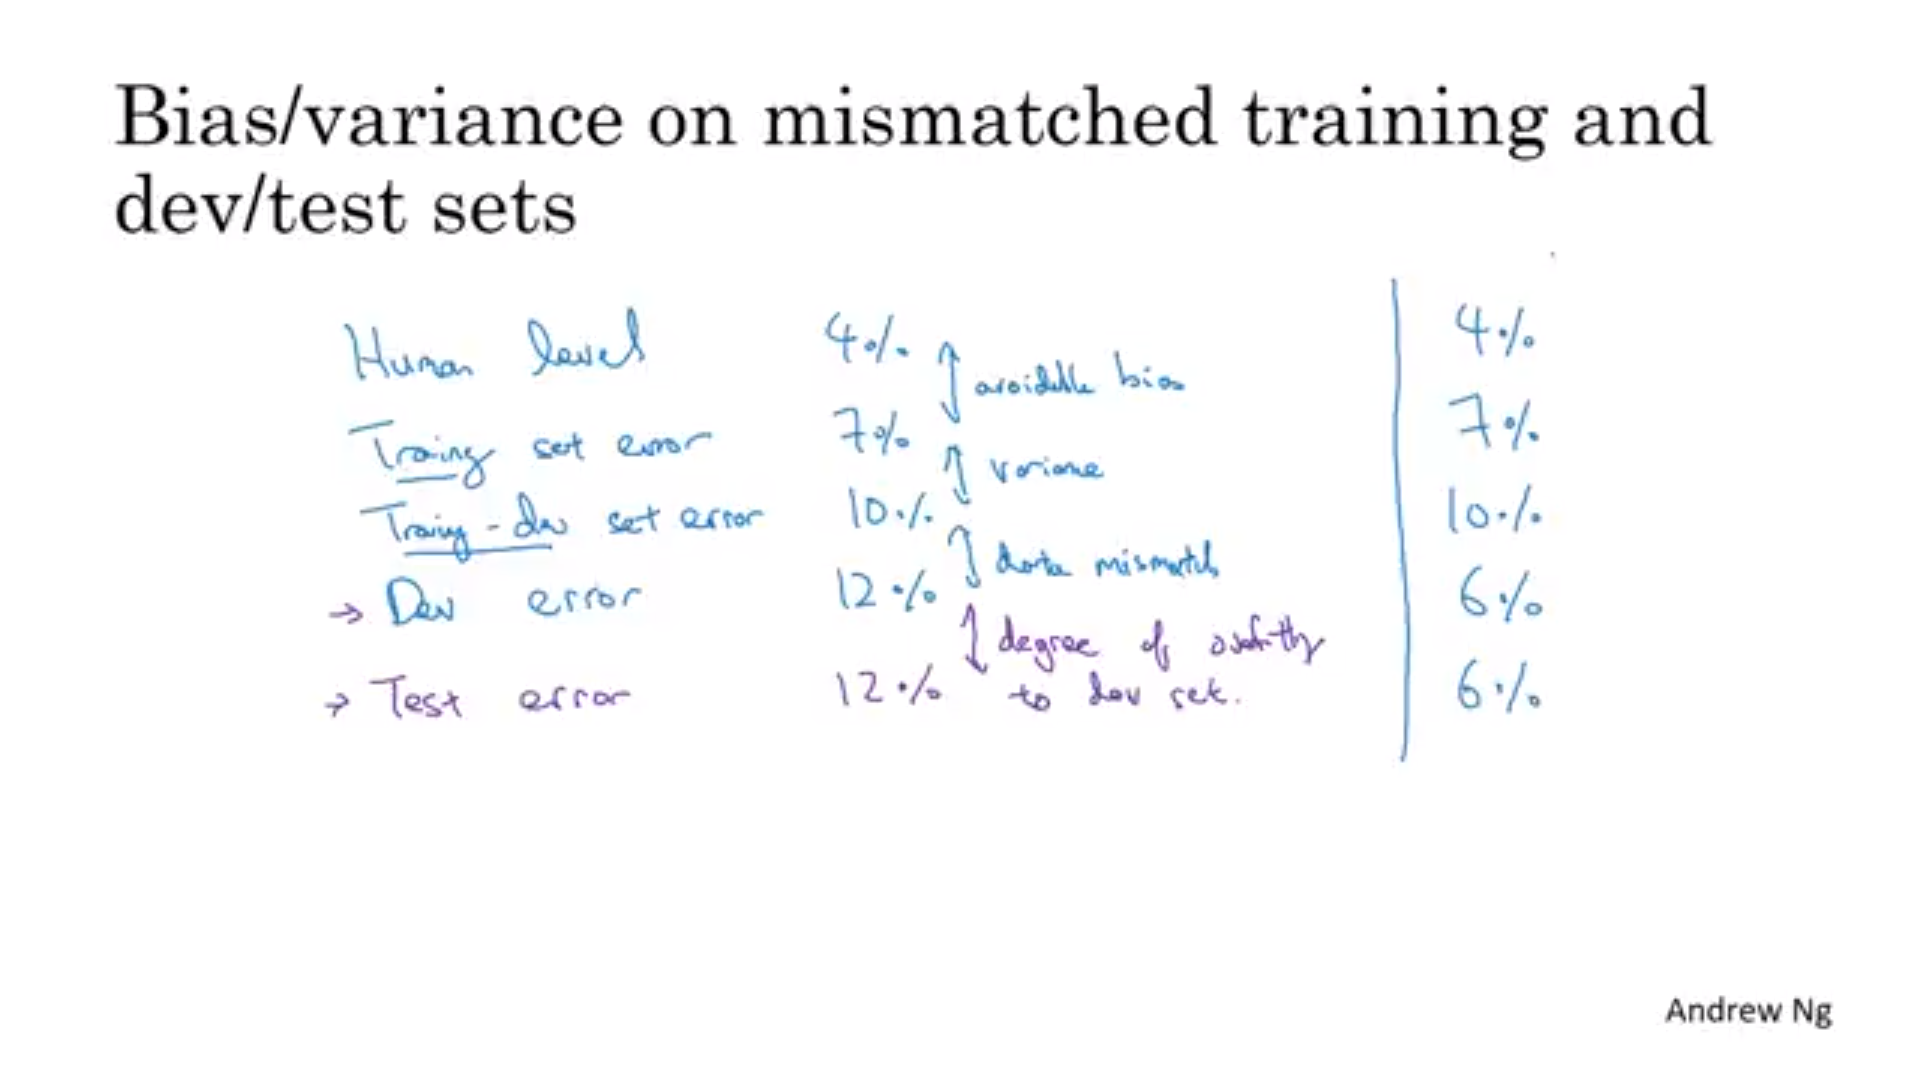 Bias/variance on mismatched training and
dev/test sets
Human level 4% avoidable bias 4%
Training set error 7% variance 7%
Training-dev set error 10% data mismatch 10%
→ Dev error 12% degree of overfitting 6%
→ Test error 12% to dev set. 6%
Andrew Ng